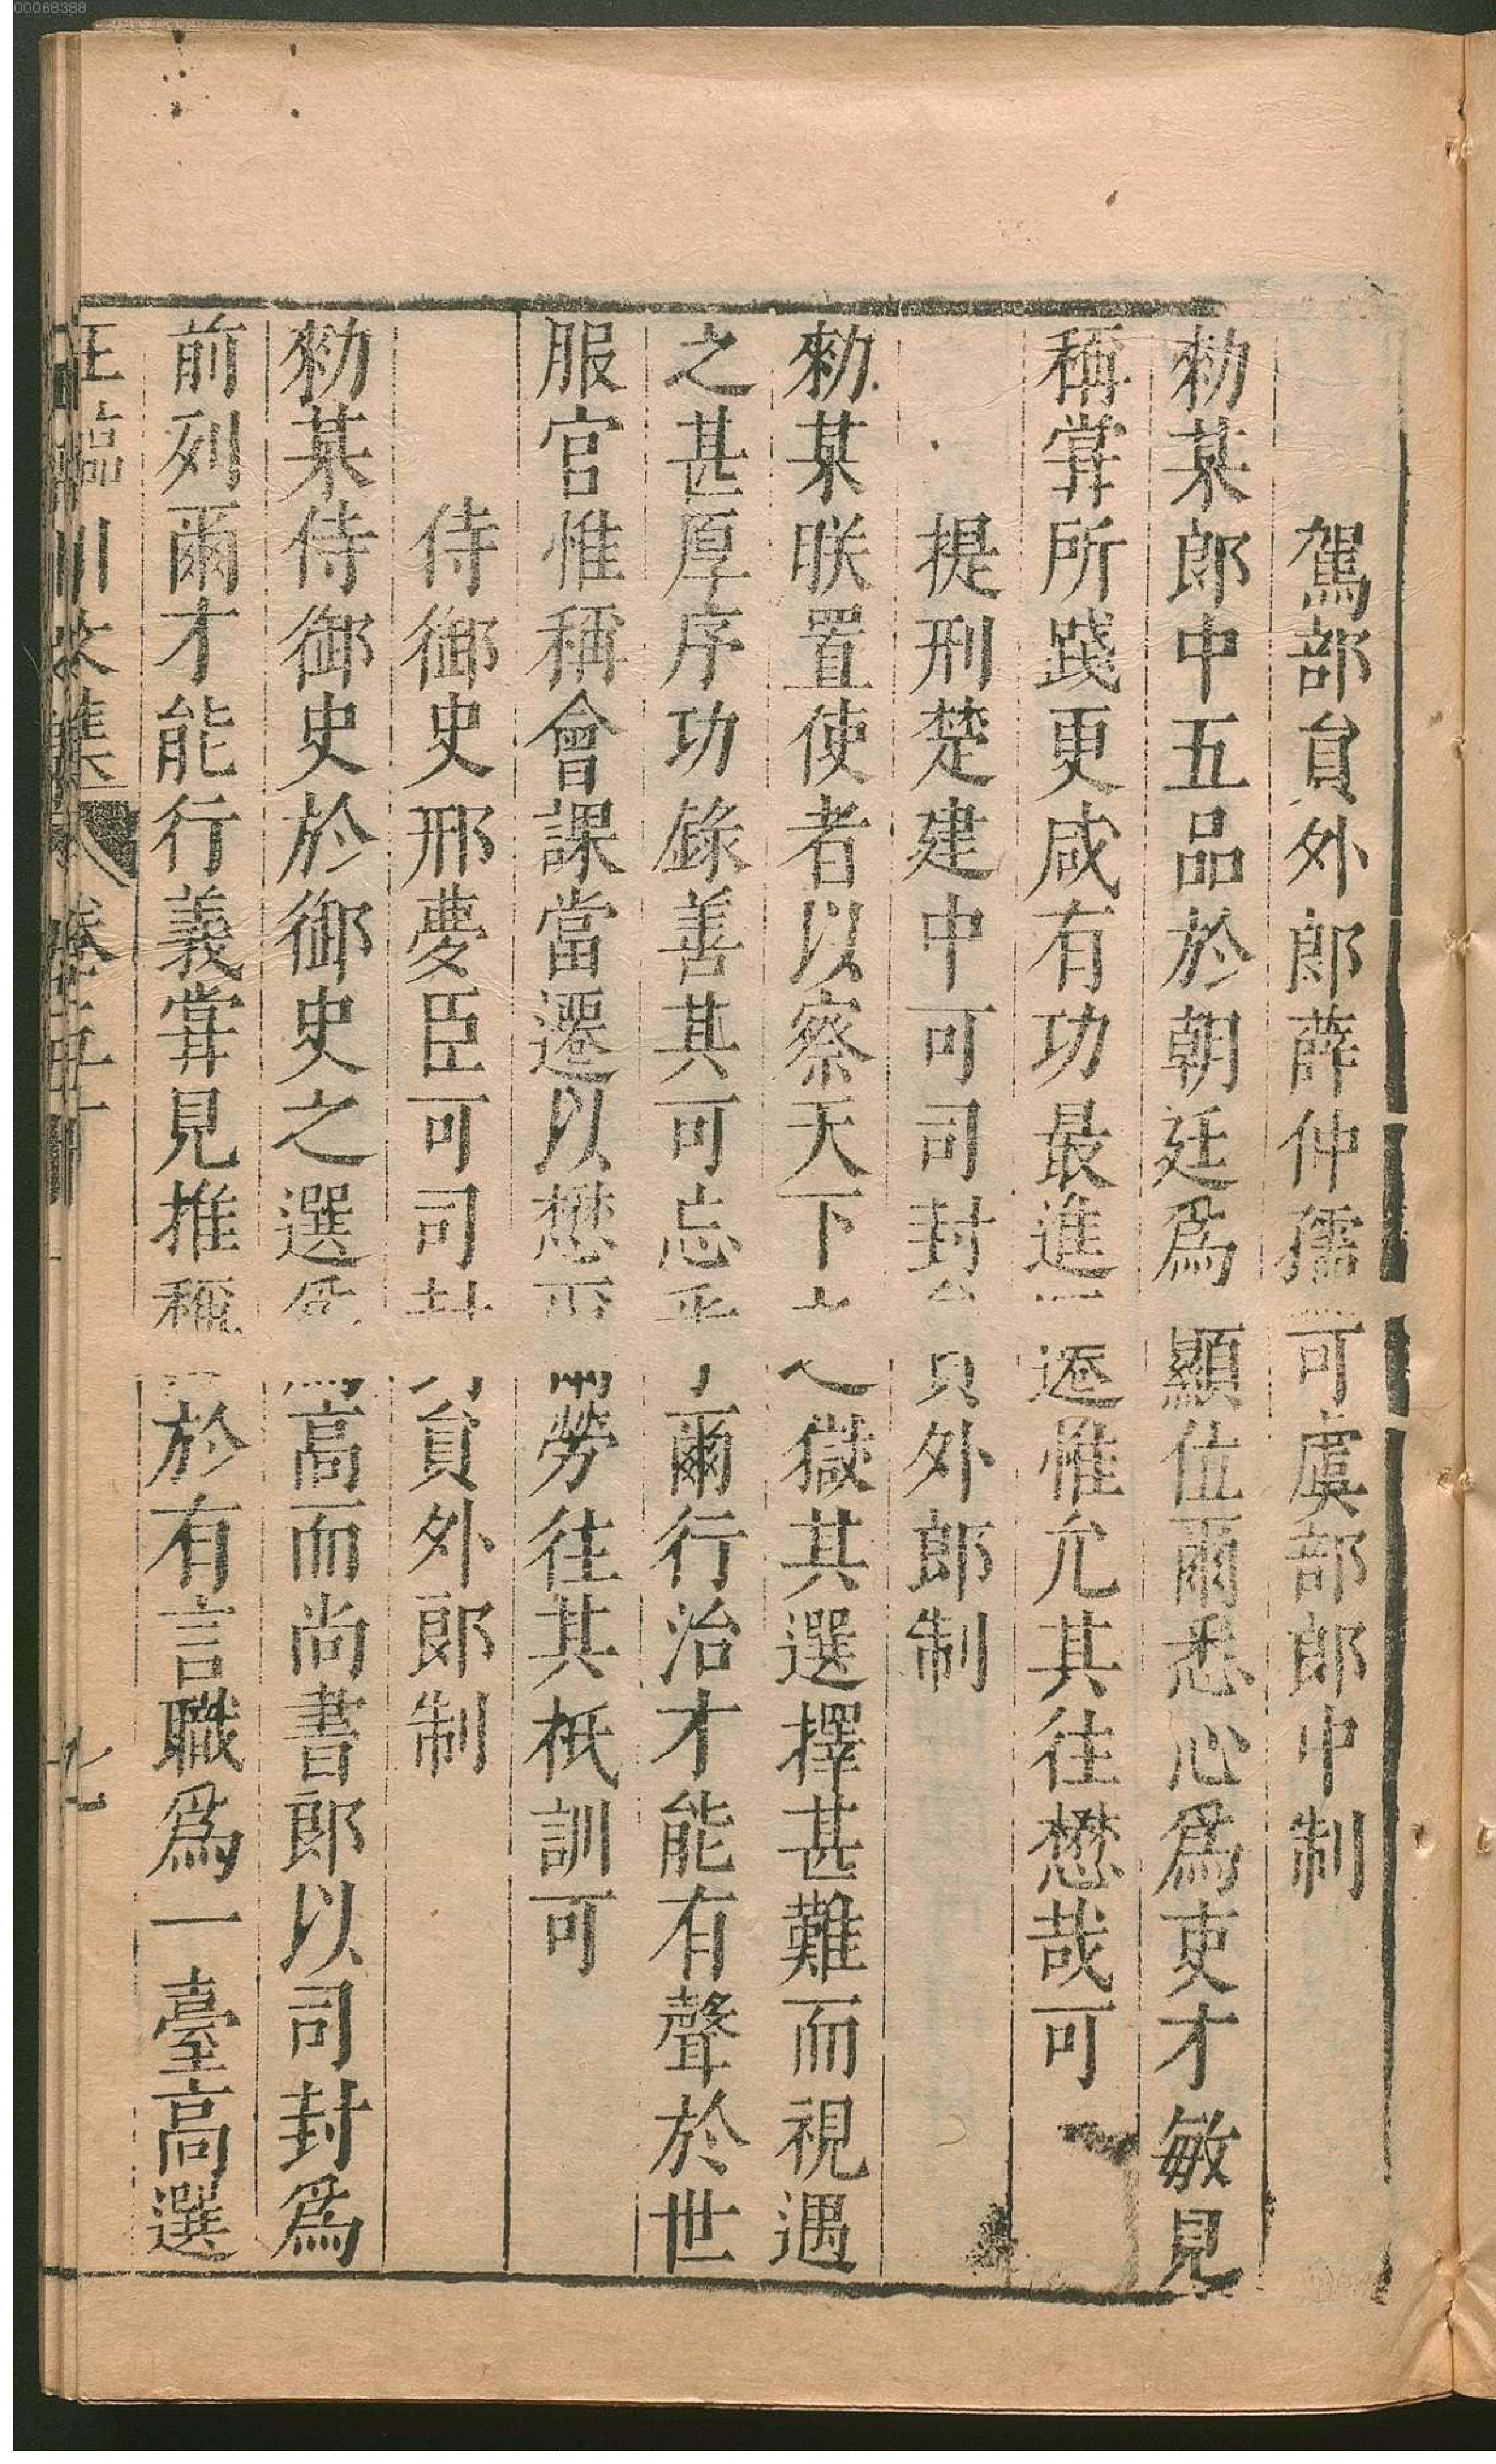 駕部貟外郎薛仲孺可虞部郎中制
勑某郎中五品於朝廷爲顯位爾悉心爲吏才敏見
稱甞所踐更咸有功最進遷惟允其往懋哉可
提刑楚建中可司封貟外郎制
勑某朕置使者以察天下之獄其選擇甚難而視遇
之甚厚序功錄善其可忘乎爾行治才能有聲於世
服官惟稱會課當遷以懋爾勞往其祇訓可
侍御史邢夢臣可司封貟外郎制
勑某侍御史於御史之選爲高而尚書郎以司封爲
前列爾才能行義甞見推稱於有言職爲一臺高選
王臨川文集
卷五十
九
00068388